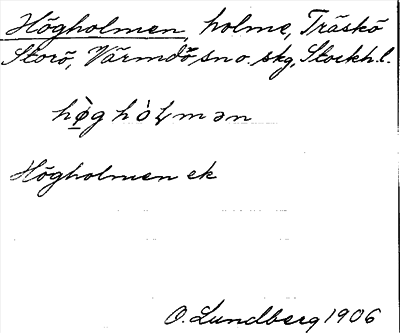 Högholmen, holme, Träskö
Storö, Värmdö sn o. skg, Stockh. l.
hø̀g hòɫmən
Högholmen ek
O. Lundberg 1906